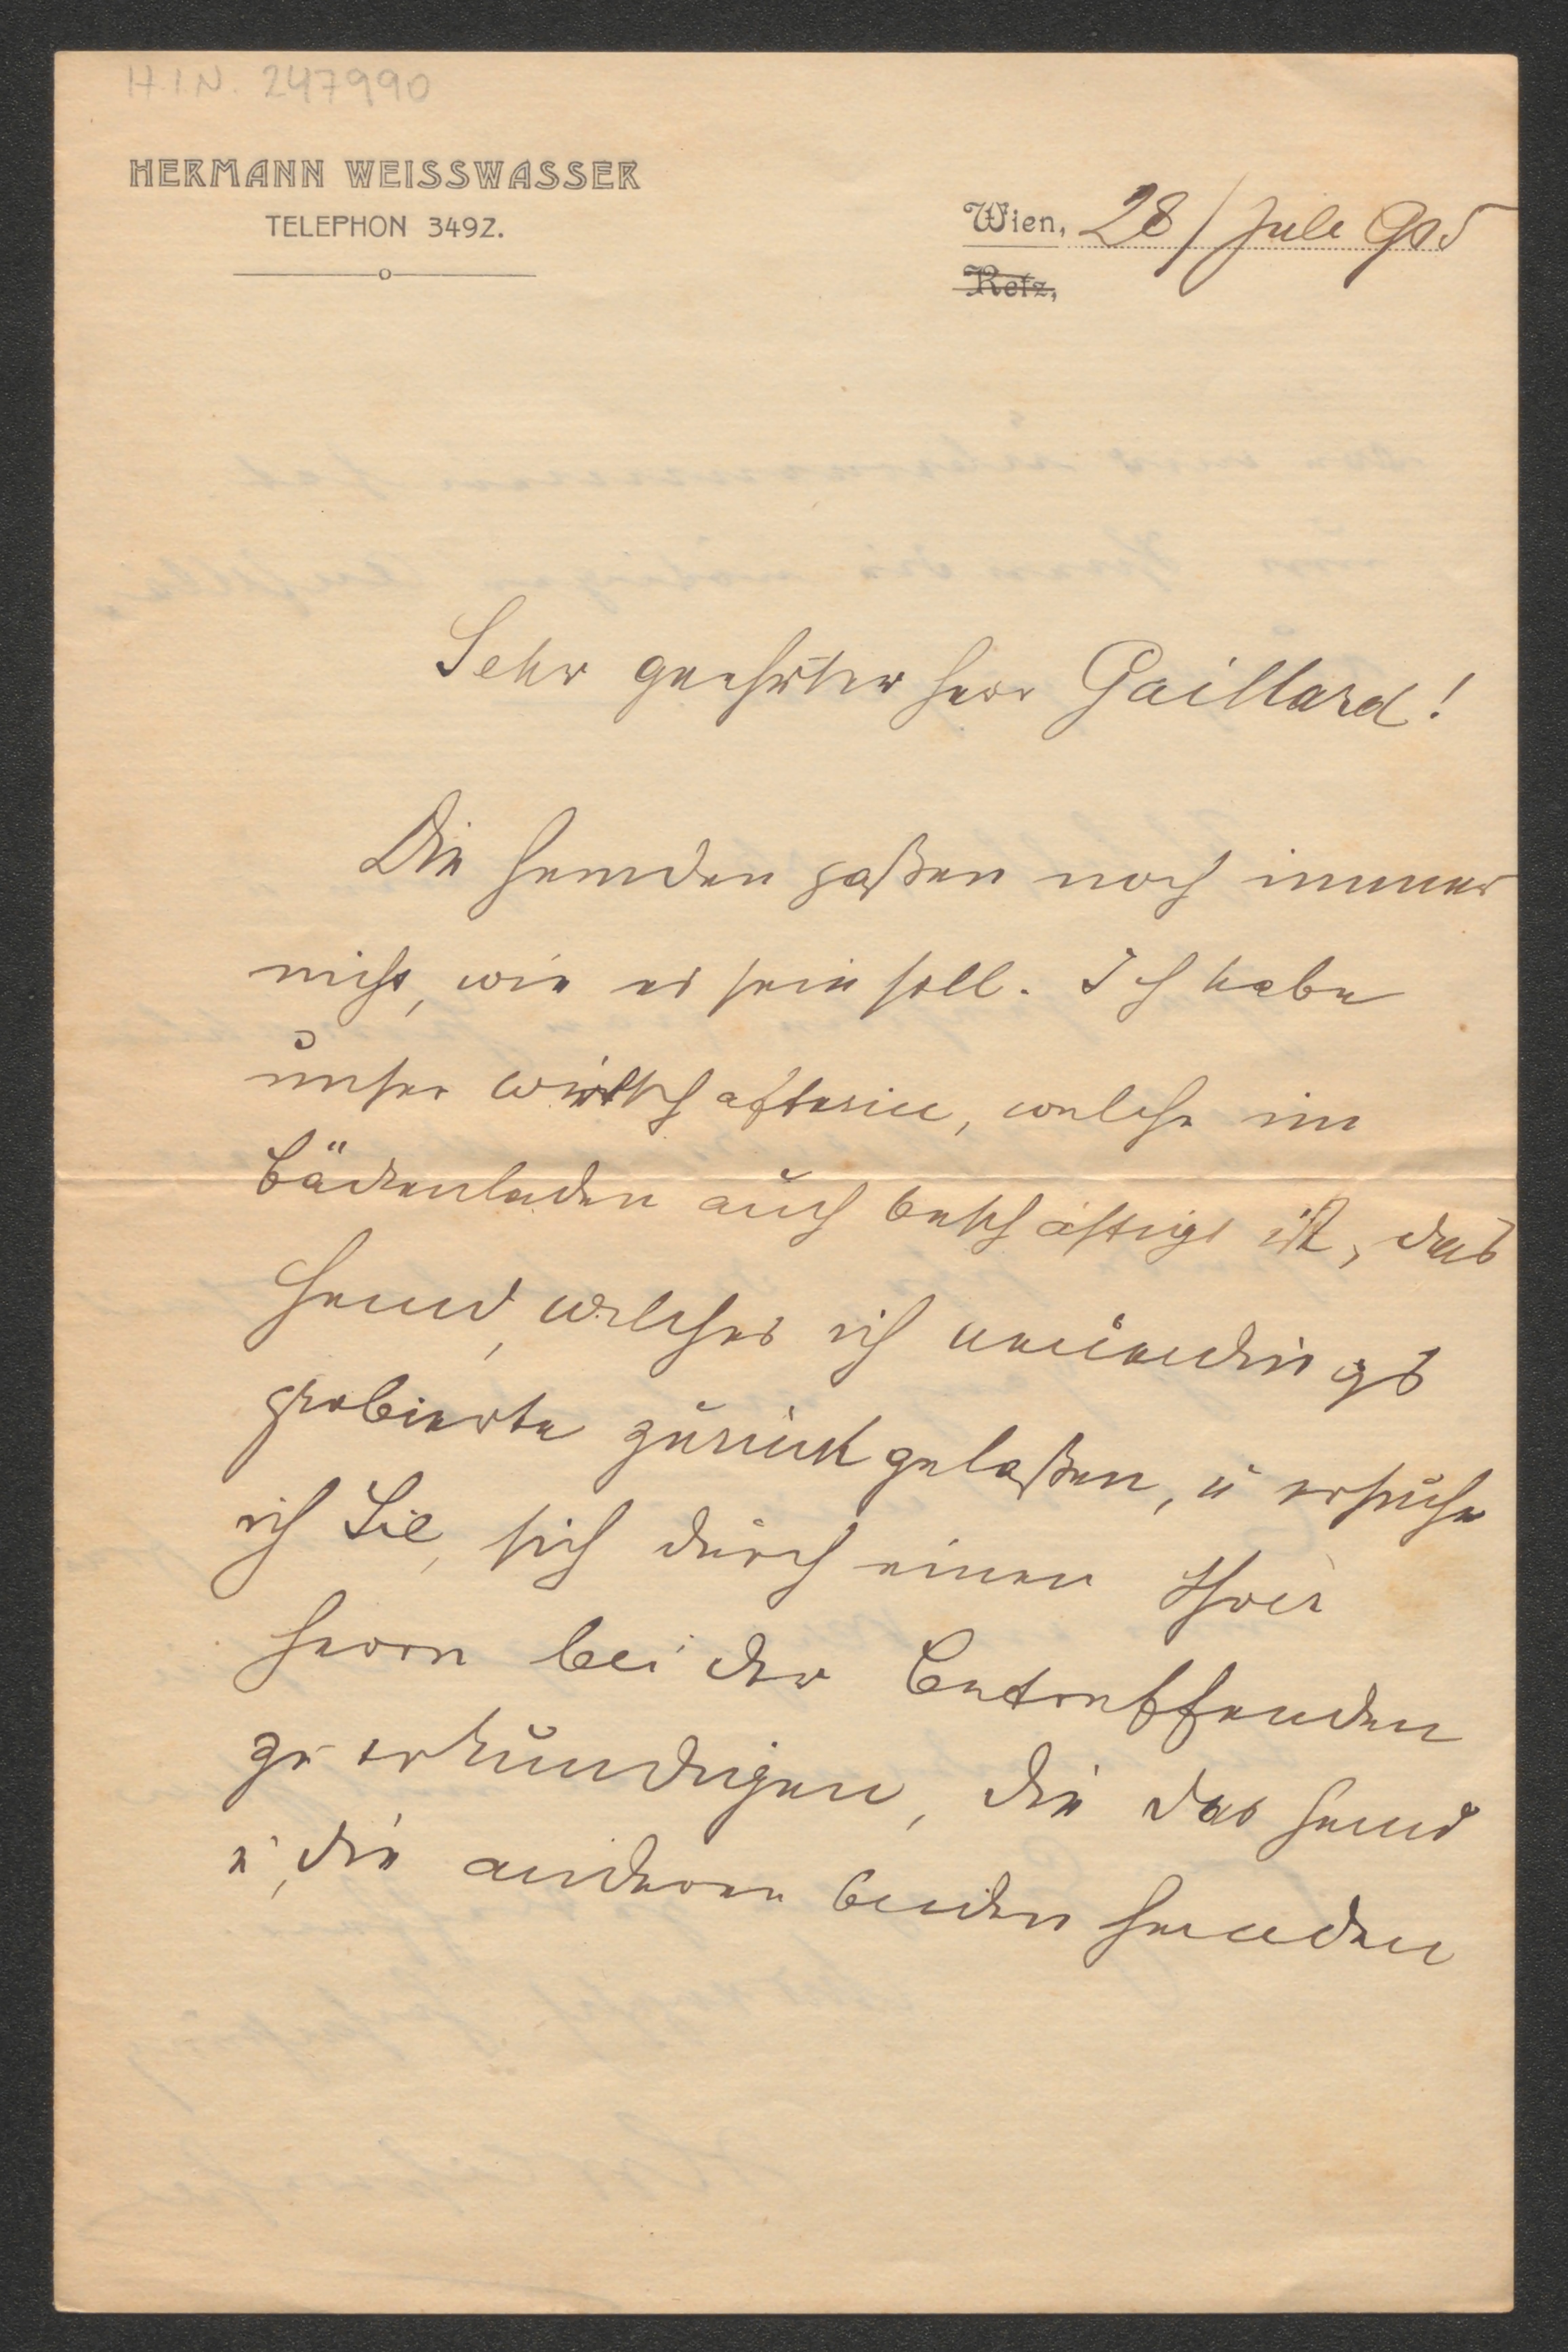 H.I.N. 247990
HERMANN WEISSWASSER
TELEPHON 3492.
Wien, 28/Juli 905
Retz,
Sehr geehrter Herr Gaillard!
Die Hemden paßen noch immer
nicht, wie es sein soll. Ich habe
unser Wirtschafterin, welche im
Bäckenladen auch beschäftigt ist, das
Hemd, welches ich neuerdings
probierte zurückgelaßen, u ersuche
ich Sie, sich durch einen Ihrer
Herrn bei der Betreffenden
zu erkundigen, die das Hemd
u, die anderen beiden Hemden